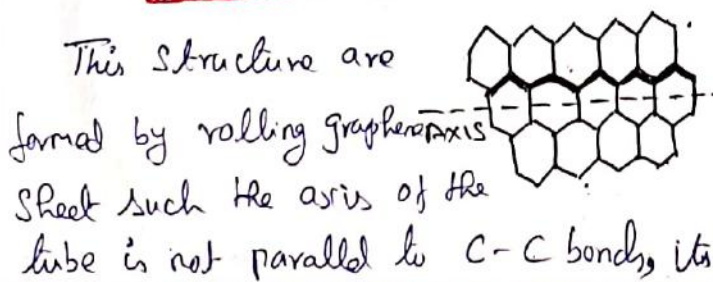 This structure are
formed by rolling graphene AXIS
sheet such the axis of the
tube is not parallel to C-C bonds, its